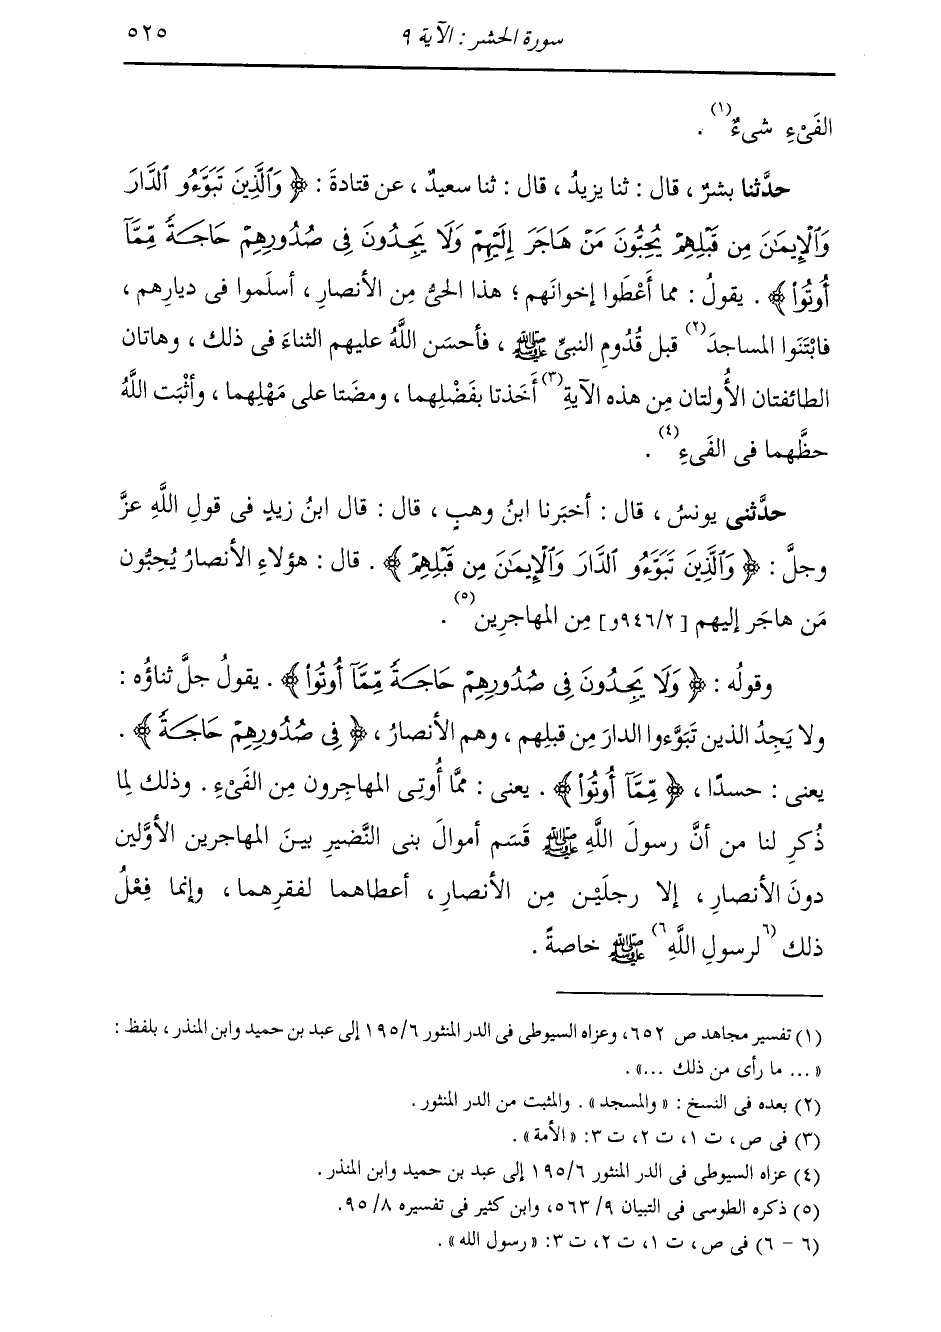 سورة الحشر : الآية ٩
٥٢٥
الفَىْءِ شىءٌ(١) .
حدَّثنا بشرٌ ، قال : ثنا يزيدُ ، قال : ثنا سعيدٌ ، عن قتادةَ : ﴿ وَٱلَّذِينَ تَبَوَّءُو ٱلدَّارَ
وَٱلْإِيمَٰنَ مِن قَبْلِهِمْ يُحِبُّونَ مَنْ هَاجَرَ إِلَيْهِمْ وَلَا يَجِدُونَ فِى صُدُورِهِمْ حَاجَةً مِّمَّآ
أُوتُواْ ﴾ . يقولُ : مما أَعْطَوا إخوانَهم ؛ هذا الحىُّ مِن الأنصارِ ، أسلَموا فى ديارِهم ،
فابْتَنَوا المساجدَ(٢) قبل قُدُومِ النبىِّ ﷺ ، فأحسَن اللَّهُ عليهم الثناءَ فى ذلك ، وهاتان
الطائفتان الأُولتان مِن هذه الآيةِ(٣) أَخَذتا بفَضْلِهما ، ومضَتا على مَهْلِهما ، وأثْبَت اللَّهُ
حظَّهما فى الفَىءِ(٤) .
حدَّثنى يونسُ ، قال : أخبَرنا ابنُ وهبٍ ، قال : قال ابنُ زيدٍ فى قولِ اللَّهِ عزَّ
وجلَّ : ﴿ وَٱلَّذِينَ تَبَوَّءُو ٱلدَّارَ وَٱلْإِيمَٰنَ مِن قَبْلِهِمْ ﴾ . قال : هؤلاءِ الأنصارُ يُحِبُّون
مَن هاجَر إليهم [٩٤٦/٢و] مِن المهاجرِين(٥) .
وقولُه : ﴿ وَلَا يَجِدُونَ فِى صُدُورِهِمْ حَاجَةً مِّمَّآ أُوتُواْ ﴾ . يقولُ جلَّ ثناؤُه :
ولا يَجِدُ الذين تَبَوَّءوا الدارَ مِن قبلِهم ، وهم الأنصارُ ، ﴿ فِى صُدُورِهِمْ حَاجَةً ﴾ .
يعنى : حسدًا ، ﴿ مِّمَّآ أُوتُواْ ﴾ . يعنى : ممَّا أُوتِى المهاجِرون مِن الفَىْءِ . وذلك لِما
ذُكر لنا من أنَّ رسولَ اللَّهِ ﷺ قَسَم أموالَ بنى النَّضيرِ بينَ المهاجرين الأوَّلين
دونَ الأنصارِ ، إلا رجلَيْن مِن الأنصارِ ، أعطاهما لفقرِهما ، وإنما فِعْلُ
ذلك (٦لرسولِ اللَّهِ٦) ﷺ خاصةً .
(١) تفسير مجاهد ص ٦٥٢، وعزاه السيوطى فى الدر المنثور ١٩٥/٦ إلى عبد بن حميد وابن المنذر ، بلفظ :
« ... ما رأى من ذلك ...» .
(٢) بعده فى النسخ : « والمسجد » . والمثبت من الدر المنثور .
(٣) فى ص ، ت ١، ت ٢، ت ٣: « الأمة » .
(٤) عزاه السيوطى فى الدر المنثور ١٩٥/٦ إلى عبد بن حميد وابن المنذر .
(٥) ذكره الطوسى فى التبيان ٥٦٣/٩، وابن كثير فى تفسيره ٩٥/٨.
(٦ - ٦) فى ص ، ت ١، ت ٢، ت ٣: « رسول الله » .